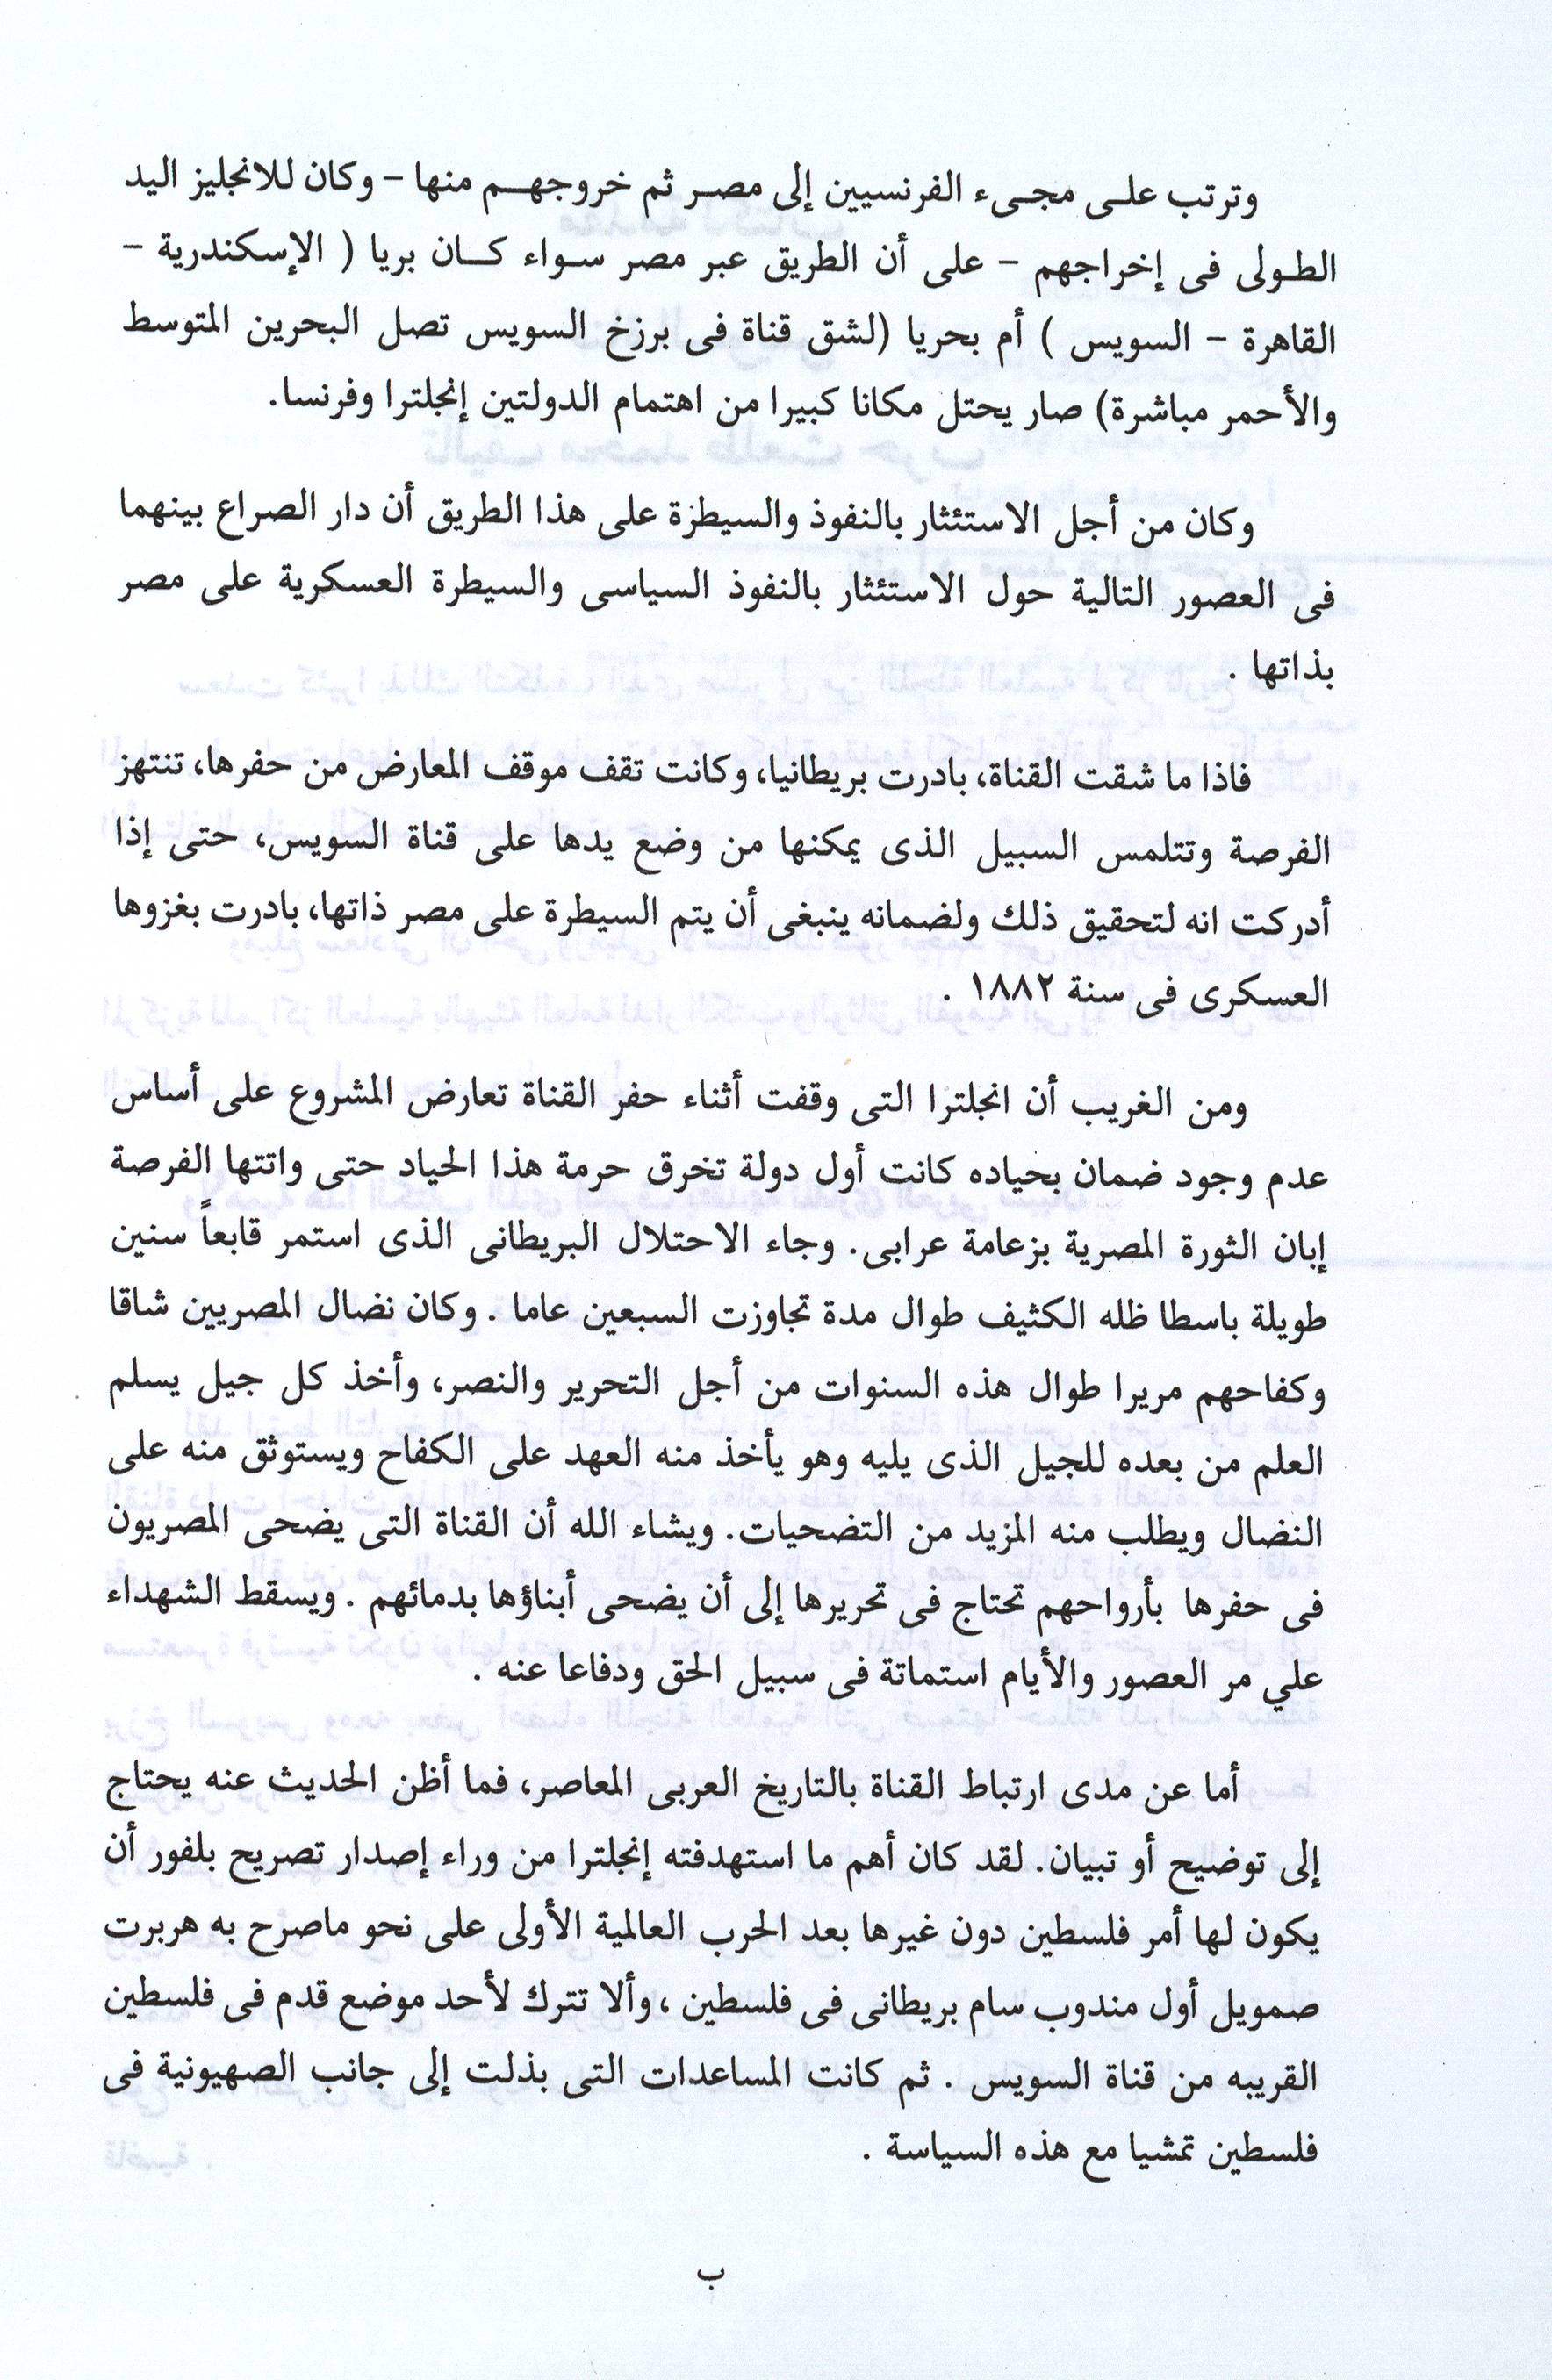 وترتب علـى مجـىء الفرنسيين إلى مصـر ثم خروجهـم منها – وكان للانجليز اليد
الطـولى فى إخراجهم – على أن الطريق عبر مصر سـواء كـان بريا ( الإسكندرية –
القاهرة – السويس ) أم بحريا (لشق قناة فى برزخ السويس تصل البحرين المتوسط
والأحمر مباشرة) صار يحتل مكانا كبيرا من اهتمام الدولتين إنجلترا وفرنسا.
وكان من أجل الاستئثار بالنفوذ والسيطرة على هذا الطريق أن دار الصراع بينهما
فى العصور التالية حول الاستئثار بالنفوذ السياسى والسيطرة العسكرية على مصر
بذاتها .
فاذا ما شقت القناة، بادرت بريطانيا، وكانت تقف موقف المعارض من حفرها، تنتهز
الفرصة وتتلمس السبيل الذى يمكنها من وضع يدها على قناة السويس، حتى إذا
أدركت انه لتحقيق ذلك ولضمانه ينبغى أن يتم السيطرة على مصر ذاتها، بادرت بغزوها
العسكرى فى سنة ١٨٨٢ .
ومن الغريب أن انجلترا التى وقفت أثناء حفر القناة تعارض المشروع على أساس
عدم وجود ضمان بحياده كانت أول دولة تخرق حرمة هذا الحياد حتى واتتها الفرصة
إبان الثورة المصرية بزعامة عرابى. وجاء الاحتلال البريطانى الذى استمر قابعاً سنين
طويلة باسطا ظله الكثيف طوال مدة تجاوزت السبعين عاما . وكان نضال المصريين شاقا
وكفاحهم مريرا طوال هذه السنوات من أجل التحرير والنصر، وأخذ كل جيل يسلم
العلم من بعده للجيل الذى يليه وهو يأخذ منه العهد على الكفاح ويستوثق منه على
النضال ويطلب منه المزيد من التضحيات. ويشاء الله أن القناة التى يضحى المصريون
فى حفرها بأرواحهم تحتاج فى تحريرها إلى أن يضحى أبناؤها بدمائهم . ويسقط الشهداء
علي مر العصور والأيام استماتة فى سبيل الحق ودفاعا عنه .
أما عن مدى ارتباط القناة بالتاريخ العربى المعاصر، فما أظن الحديث عنه يحتاج
إلى توضيح أو تبيان. لقد كان أهم ما استهدفته إنجلترا من وراء إصدار تصريح بلفور أن
يكون لها أمر فلسطين دون غيرها بعد الحرب العالمية الأولى على نحو ماصرح به هربرت
صمويل أول مندوب سام بريطانى فى فلسطين ، وألا تترك لأحد موضع قدم فى فلسطين
القريبه من قناة السويس . ثم كانت المساعدات التى بذلت إلى جانب الصهيونية فى
فلسطين تمشيا مع هذه السياسة .
ب